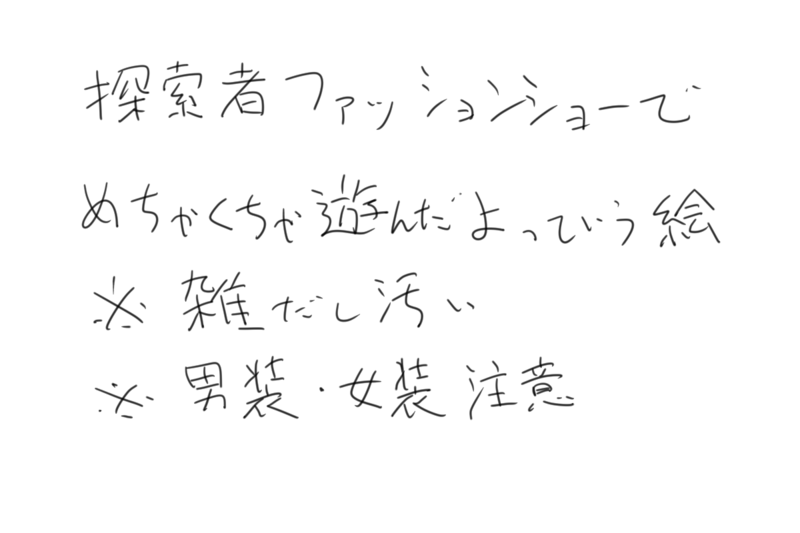 探索者ファッションショーで
めちゃくちゃ遊んだよっていう絵
※ 雑だし汚い
※ 男装・女装 注意